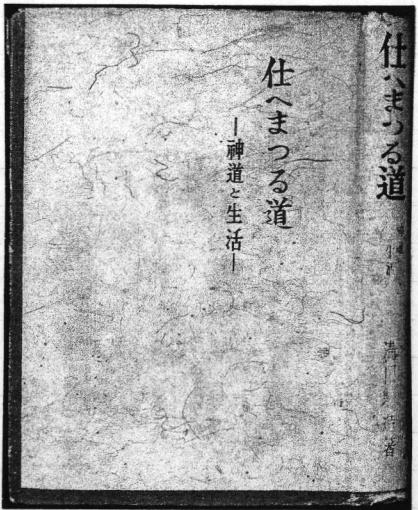 仕へまつる道
仕へまつる道
―神道と生活―